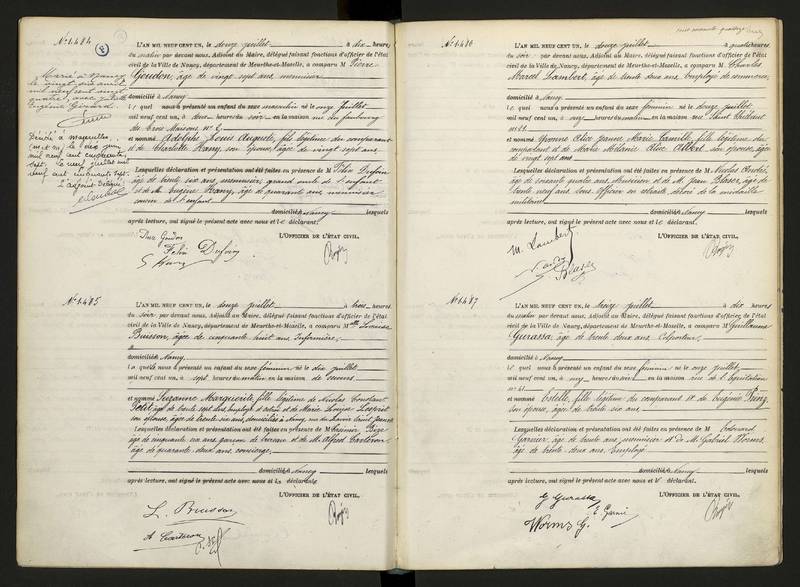 N° 1.484
L'AN MIL NEUF CENT UN, le douze juillet à dix heures
du matin par devant nous, Adjoint au Maire, délégué faisant fonctions d'officier de l'état
civil de la Ville de Nancy, département de Meurthe-et-Moselle, a comparu M Pierre
Goudon, âgé de vingt sept ans, menuisier
domicilié à Nancy
Le quel nous a présenté un enfant du sexe masculin né le onze juillet
mil neuf cent un, à deux heures du soir en la maison rue du faubourg
des Trois Maisons n°
et nommé Adolphe Louis Auguste, fils légitime du comparant
et de Charlotte Hany, son épouse, âgée de vingt sept ans
Lesquelles déclaration et présentation ont été faites en présence de M Félix Dufour
âgé de trente six ans, menuisier, grand oncle de l'enfant
et de M. Eugène Hany, âgé de quarante ans, menuisier
cousin de l'enfant
domiciliés à Nancy lesquels
après lecture, ont signé le présent acte avec nous et le déclarant.
L'OFFICIER DE L'ÉTAT CIVIL,
Marié à Nancy
le vingt six août
mil neuf cent vingt
quatre, avec
Eugénie
Décédé à
le dix juin
mil neuf cent cinquante
sept. Le neuf juillet mil
neuf cent cinquante sept.
N° 1.485
L'AN MIL NEUF CENT UN, le douze juillet à trois heures
du soir par devant nous, Adjoint au Maire, délégué faisant fonctions d'officier de l'état
civil de la Ville de Nancy, département de Meurthe-et-Moselle, a comparu Melle Louise
Buisson, âgée de cinquante huit ans, Infirmière,
domiciliée à Nancy
La quelle nous a présenté un enfant du sexe féminin né le dix juillet
mil neuf cent un, à sept heures du matin en la maison de secours
et nommé Suzanne Marguerite, fille légitime de Nicolas Constant
Petit, âgé de trente sept ans, employé d'octroi et de Marie Louise
son épouse, âgée de trente six ans, domiciliés à Nancy, rue du
Lesquelles déclaration et présentation ont été faites en présence de M Casimir Bize
âgé de cinquante six ans, garçon de bureau et de M. Alfred Carteron
âgé de quarante deux ans, concierge
domiciliés à Nancy lesquels
après lecture, ont signé le présent acte avec nous et la déclarante.
L'OFFICIER DE L'ÉTAT CIVIL,
L. Buisson
A Carteron
N° 1.486
L'AN MIL NEUF CENT UN, le douze juillet à quatre heures
du soir par devant nous, Adjoint au Maire, délégué faisant fonctions d'officier de l'état
civil de la Ville de Nancy, département de Meurthe-et-Moselle, a comparu M Charles
Marcel Lambert, âgé de trente deux ans, Employé de commerce,
domicilié à Nancy
Le quel nous a présenté un enfant du sexe féminin né le douze juillet
mil neuf cent un, à onze heures du matin en la maison rue
et nommé Yvonne Alice Jeanne Marie Camille, fille légitime du
comparant et de Marie Mélanie Alice Albert, son épouse, âgée
de vingt sept ans
Lesquelles déclaration et présentation ont été faites en présence de M Nicolas André,
âgé de soixante quatre ans, Menuisier et de M. Jean Blaser, âgé de
trente neuf ans, sous officier en retraite, décoré de la médaille
militaire
domiciliés à Nancy lesquels
après lecture, ont signé le présent acte avec nous et le déclarant.
L'OFFICIER DE L'ÉTAT CIVIL,
M. Lambert
Blaser
N° 1.487
L'AN MIL NEUF CENT UN, le treize juillet à dix heures
du matin par devant nous, Adjoint au Maire, délégué faisant fonctions d'officier de l'état
civil de la Ville de Nancy, département de Meurthe-et-Moselle, a comparu M Guillaume
Gurassa, âgé de trente deux ans, Colporteur,
domicilié à Nancy
Le quel nous a présenté un enfant du sexe féminin né le onze juillet
mil neuf cent un, à onze heures du soir en la maison rue de l'équitation
n° 41
et nommé Estelle, fille légitime du comparant et de Eugénie Prinz
son épouse, âgée de trente six ans
Lesquelles déclaration et présentation ont été faites en présence de M Edouard
Garnier, âgé de trente ans, menuisier et de M. Gabriel Worms,
âgé de trente deux ans, Employé
domiciliés à Nancy lesquels
après lecture, ont signé le présent acte avec nous et le déclarant.
L'OFFICIER DE L'ÉTAT CIVIL,
G Gurassa
Worms G.